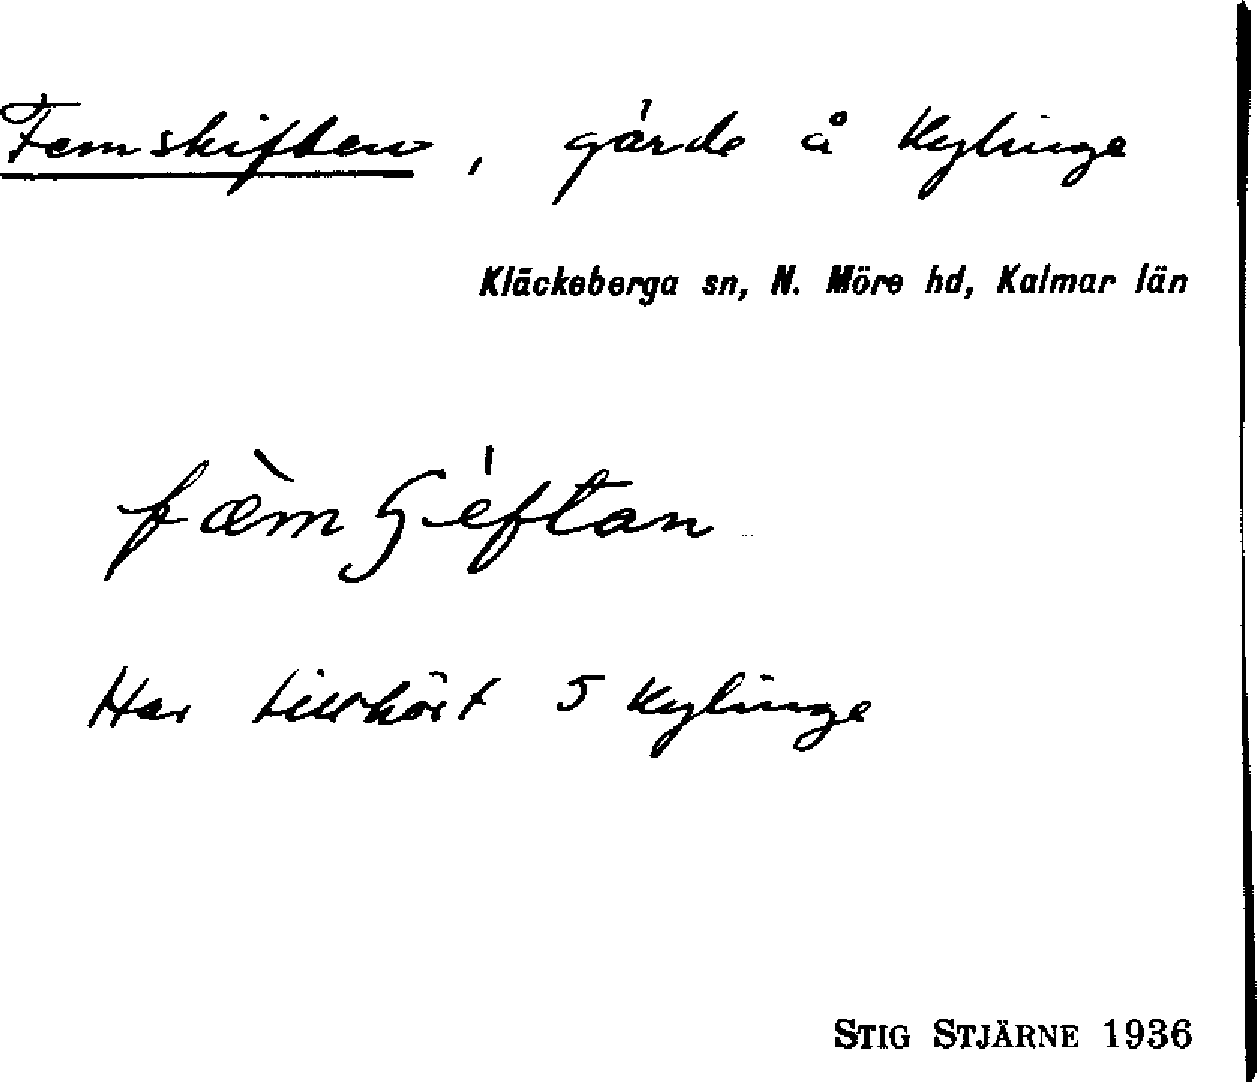 Femskiften, gärde å Kylinge
Kläckeberga sn, N. Möre hd, Kalmar län
fæ̀mʃéftan
Har tillhört 5 Kylinge
STIG STJÄRNE 1936